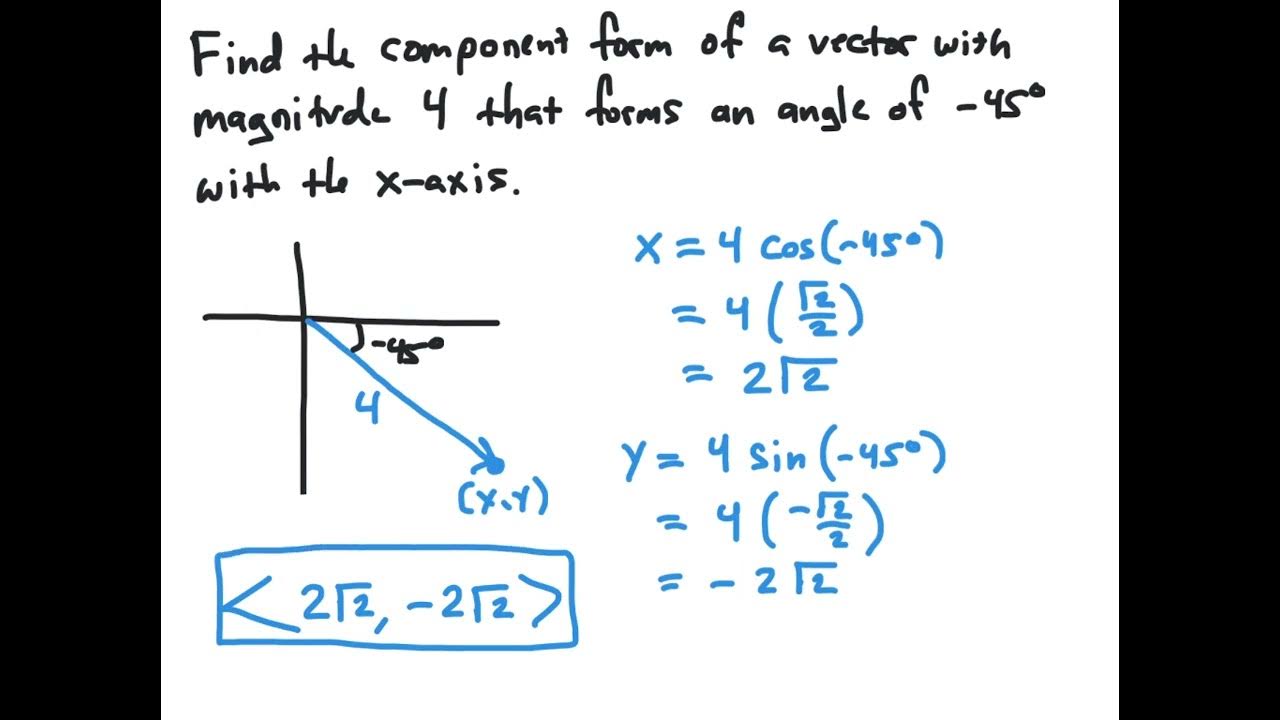 Find the component form of a vector with
magnitude 4 that forms an angle of -45°
with the x-axis.
x = 4 cos(-45°)
= 4 (√2/2)
= 2√2
-45°
4
(x,y)
y = 4 sin(-45°)
= 4 (-√2/2)
= -2√2
< 2√2, -2√2 >